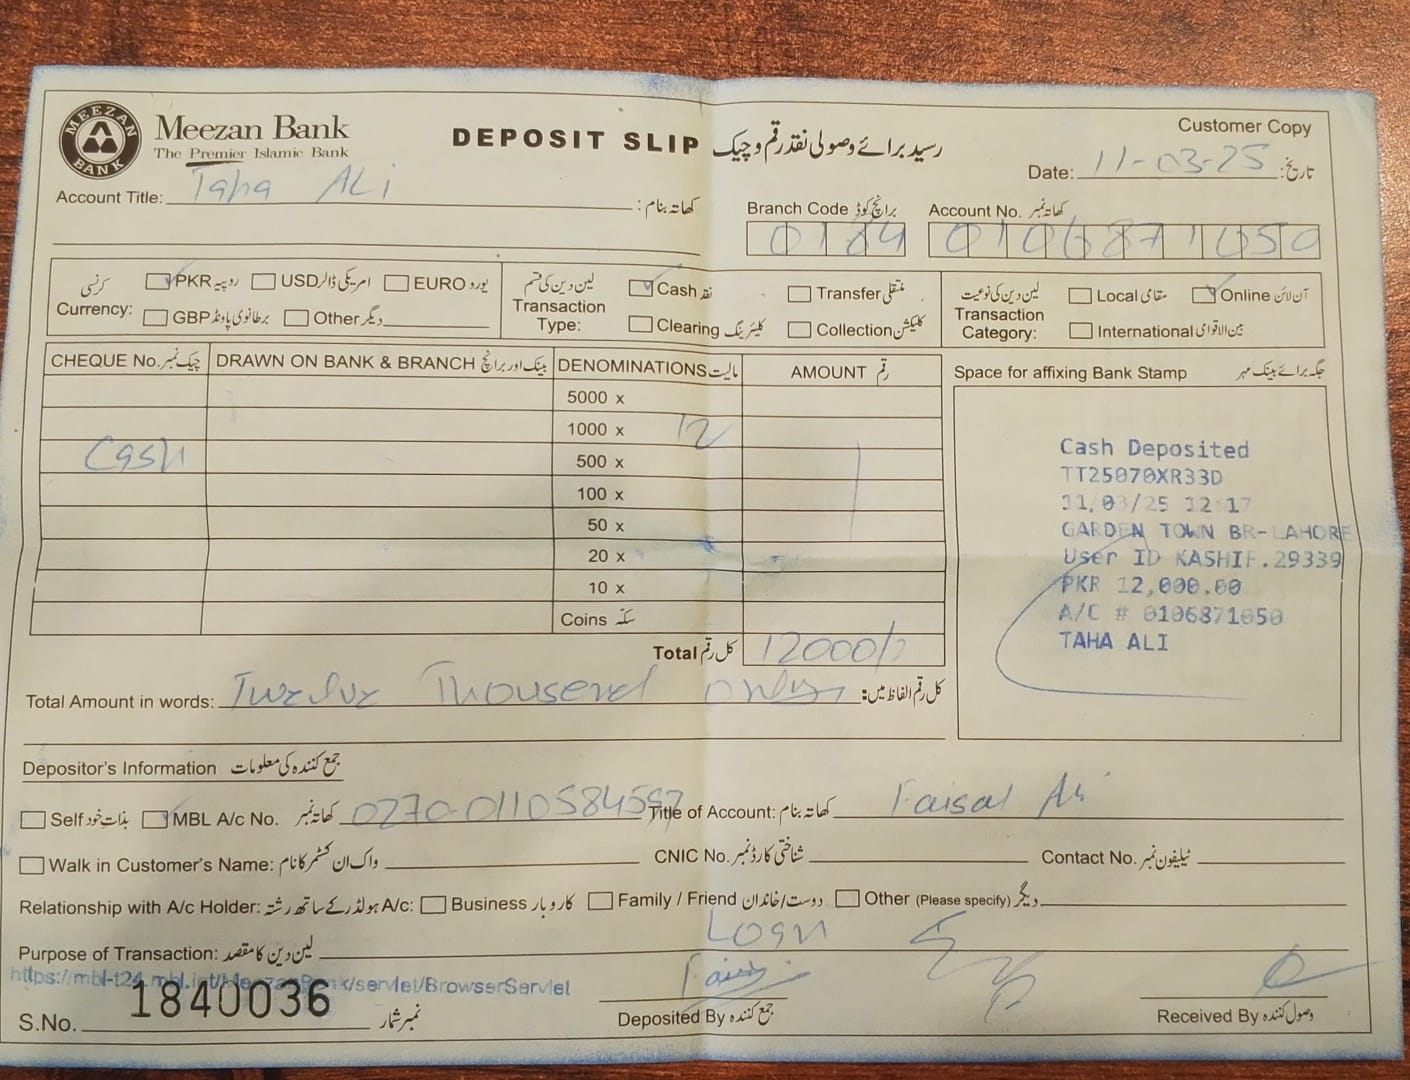 MEEZAN BANK
Meezan Bank
The Premier Islamic Bank
DEPOSIT SLIP رسید برائے وصولی نقد رقم و چیک
Customer Copy
Date: 11-03-25 تاریخ:
Account Title: Taha ALi کھاتہ بنام:
Branch Code برانچ کوڈ Account No. کھاتہ نمبر
0184 0106871050
کرنسی Currency: PKR روپیہ USD امریکی ڈالر EURO یورو
GBP برطانوی پاونڈ Other دیگر
لین دین کی قسم Transaction Type: Cash نقد Transfer منتقلی
Clearing کلیئرنگ Collection کلیکشن
لین دین کی نوعیت Transaction Category: Local مقامی Online آن لائن
International بین الاقوامی
CHEQUE No. چیک نمبر DRAWN ON BANK & BRANCH بینک اور برانچ DENOMINATIONS مالیت AMOUNT رقم
Space for affixing Bank Stamp جگہ برائے بینک مہر
5000 x
1000 x 12
Cash
500 x
100 x
50 x
20 x
10 x
Coins سکہ
Total کل رقم 12000/
Cash Deposited
TT25070XR33D
11/03/25 12:17
GARDEN TOWN BR-LAHORE
User ID KASHIF.29339
PKR 12,000.00
A/C # 0106871050
TAHA ALI
Total Amount in words: Twelve Thousend only کل رقم الفاظ میں:
Depositor's Information جمع کنندہ کی معلومات
Self بذات خود MBL A/c No. کھاتہ نمبر 0270-0110584597 Title of Account: کھاتہ بنام Faisal Ali
Walk in Customer's Name: واک ان کسٹمر کا نام CNIC No. شناختی کارڈ نمبر Contact No. ٹیلیفون نمبر
Relationship with A/c Holder: اکاؤنٹ ہولڈر کے ساتھ رشتہ A/c: Business کاروبار Family / Friend دوست/خاندان Other (Please specify) دیگر
Purpose of Transaction: لین دین کا مقصد Loan
https://mbl-t24.mbl.int/MeezanBank/servlet/BrowserServlet
S.No. 1840036 نمبر شمار
Deposited By جمع کنندہ
Received By وصول کنندہ